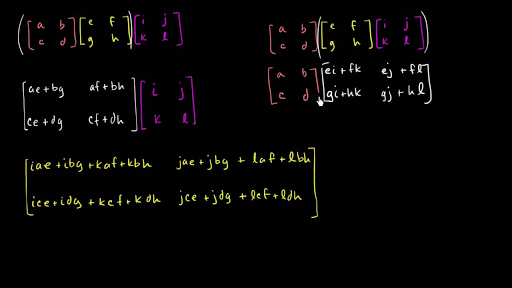 ([a b c d][e f g h])[i j k l]
[a b c d]([e f g h][i j k l])
[ae+bg af+bh
ce+dg cf+dh][i j k l]
[a b c d][ei+fk ej+fl
gi+hk gj+hl]
[iae+ibg+kaf+kbh jae+jbg+laf+lbh
ice+idg+kcf+kdh jce+jdg+lcf+ldh]